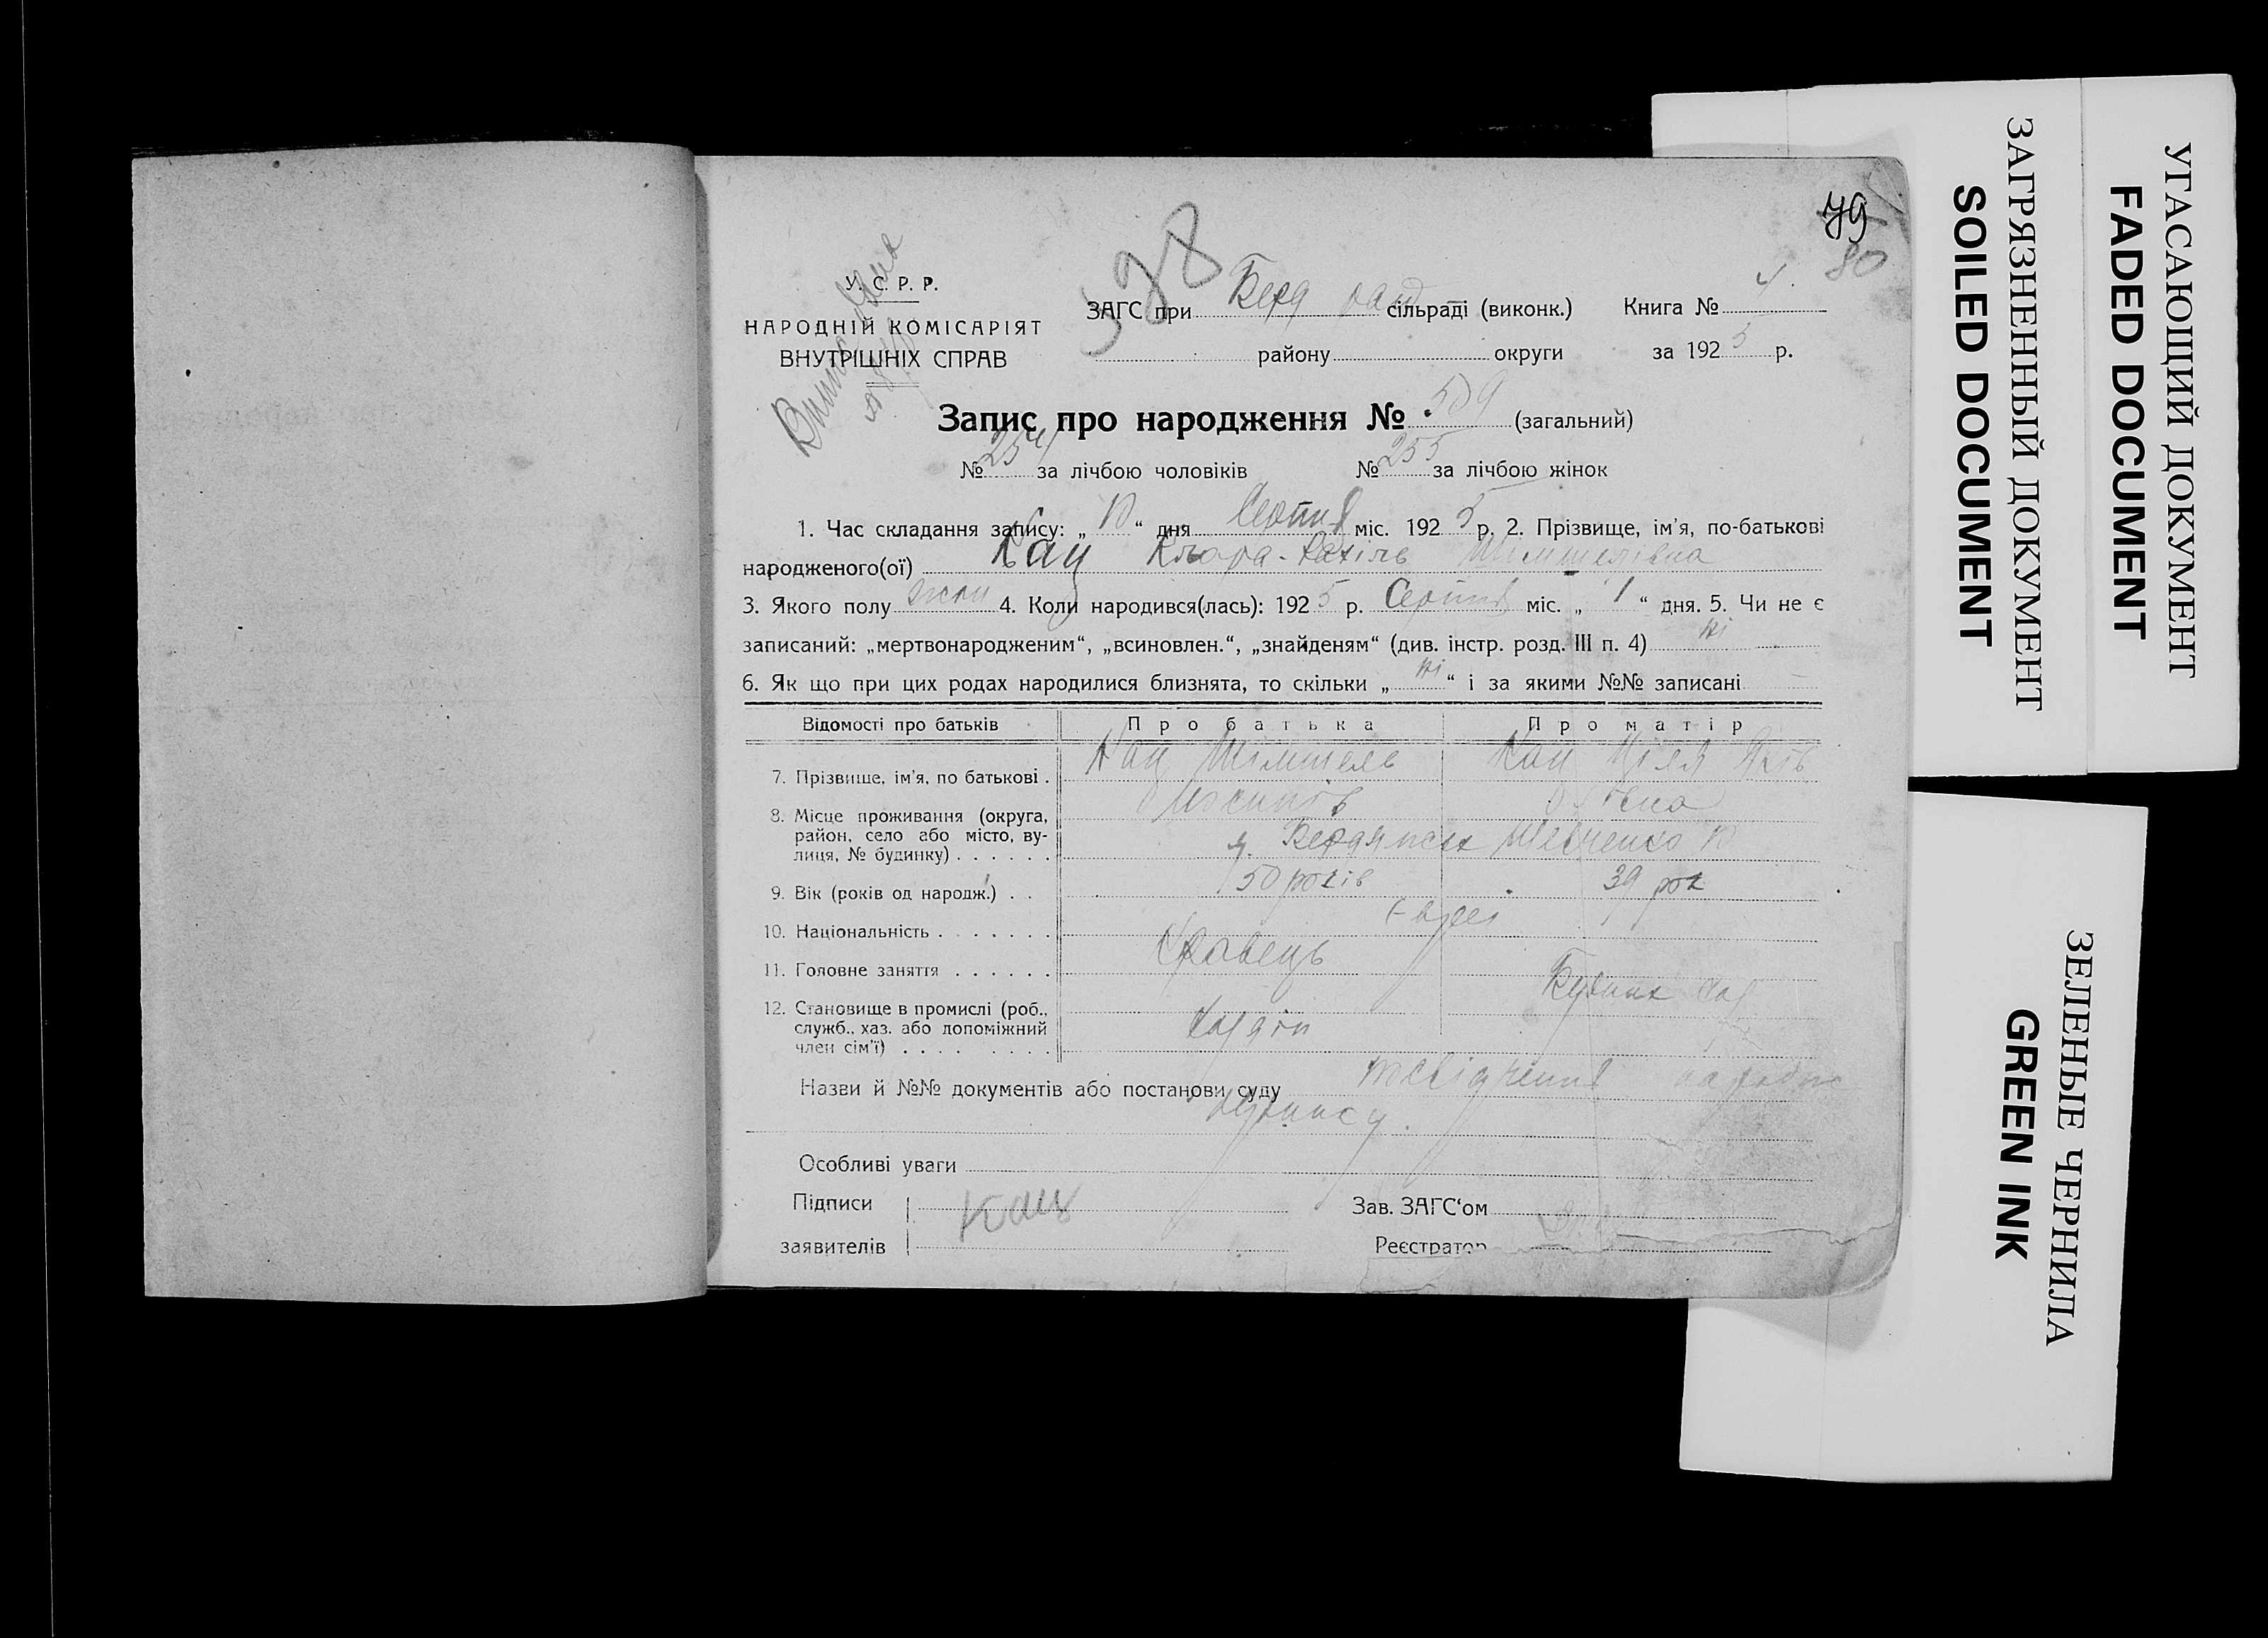 79
80
398
У. С. Р. Р.
НАРОДНІЙ КОМІСАРІЯТ
ВНУТРІШНІХ СПРАВ
ЗАГС при Берд сільраді (виконк.) Книга № 4.
району округи за 1925 р.
Запис про народження № 509 (загальний)
№ 254 за лічбою чоловіків № 255 за лічбою жінок
1. Час складання запису: „10“ дня Серпня міс. 1925 р. 2. Прізвище, ім'я, по-батькові
народженого(ої) Кац Клара-Рахіль Шимшелівна
3. Якого полу жін 4. Коли народився(лась): 1925 р. Серпня міс. „1“ дня. 5. Чи не є
записаний: „мертвонародженим“, „всиновлен.“, „знайденям“ (див. інстр. розд. III п. 4) ні
6. Як що при цих родах народилися близнята, то скільки „ні“ і за якими №№ записані
Відомості про батьків Про батька Про матір
7. Прізвище, ім'я, по батькові . Кац Шимшель Кац Ціля
8. Місце проживання (округа,
район, село або місто, ву-
лиця, № будинку) . . . . . . Бердянськ Шевченко 10
9. Вік (років од народж.) . . 50 років 39 рок
10. Національність . . . . . . . Євреи
11. Головне заняття . . . . . . Кравець
12. Становище в промислі (роб.,
служб., хаз. або допоміжний
член сім'ї) . . . . . . . .
Назви й №№ документів або постанови суду
Особливі уваги
Підписи Кац Зав. ЗАГС‘ом
заявителів Реєстратор
УГАСАЮЩИЙ ДОКУМЕНТ
FADED DOCUMENT
ЗАГРЯЗНЕННЫЙ ДОКУМЕНТ
SOILED DOCUMENT
ЗЕЛЕНЫЕ ЧЕРНИЛА
GREEN INK